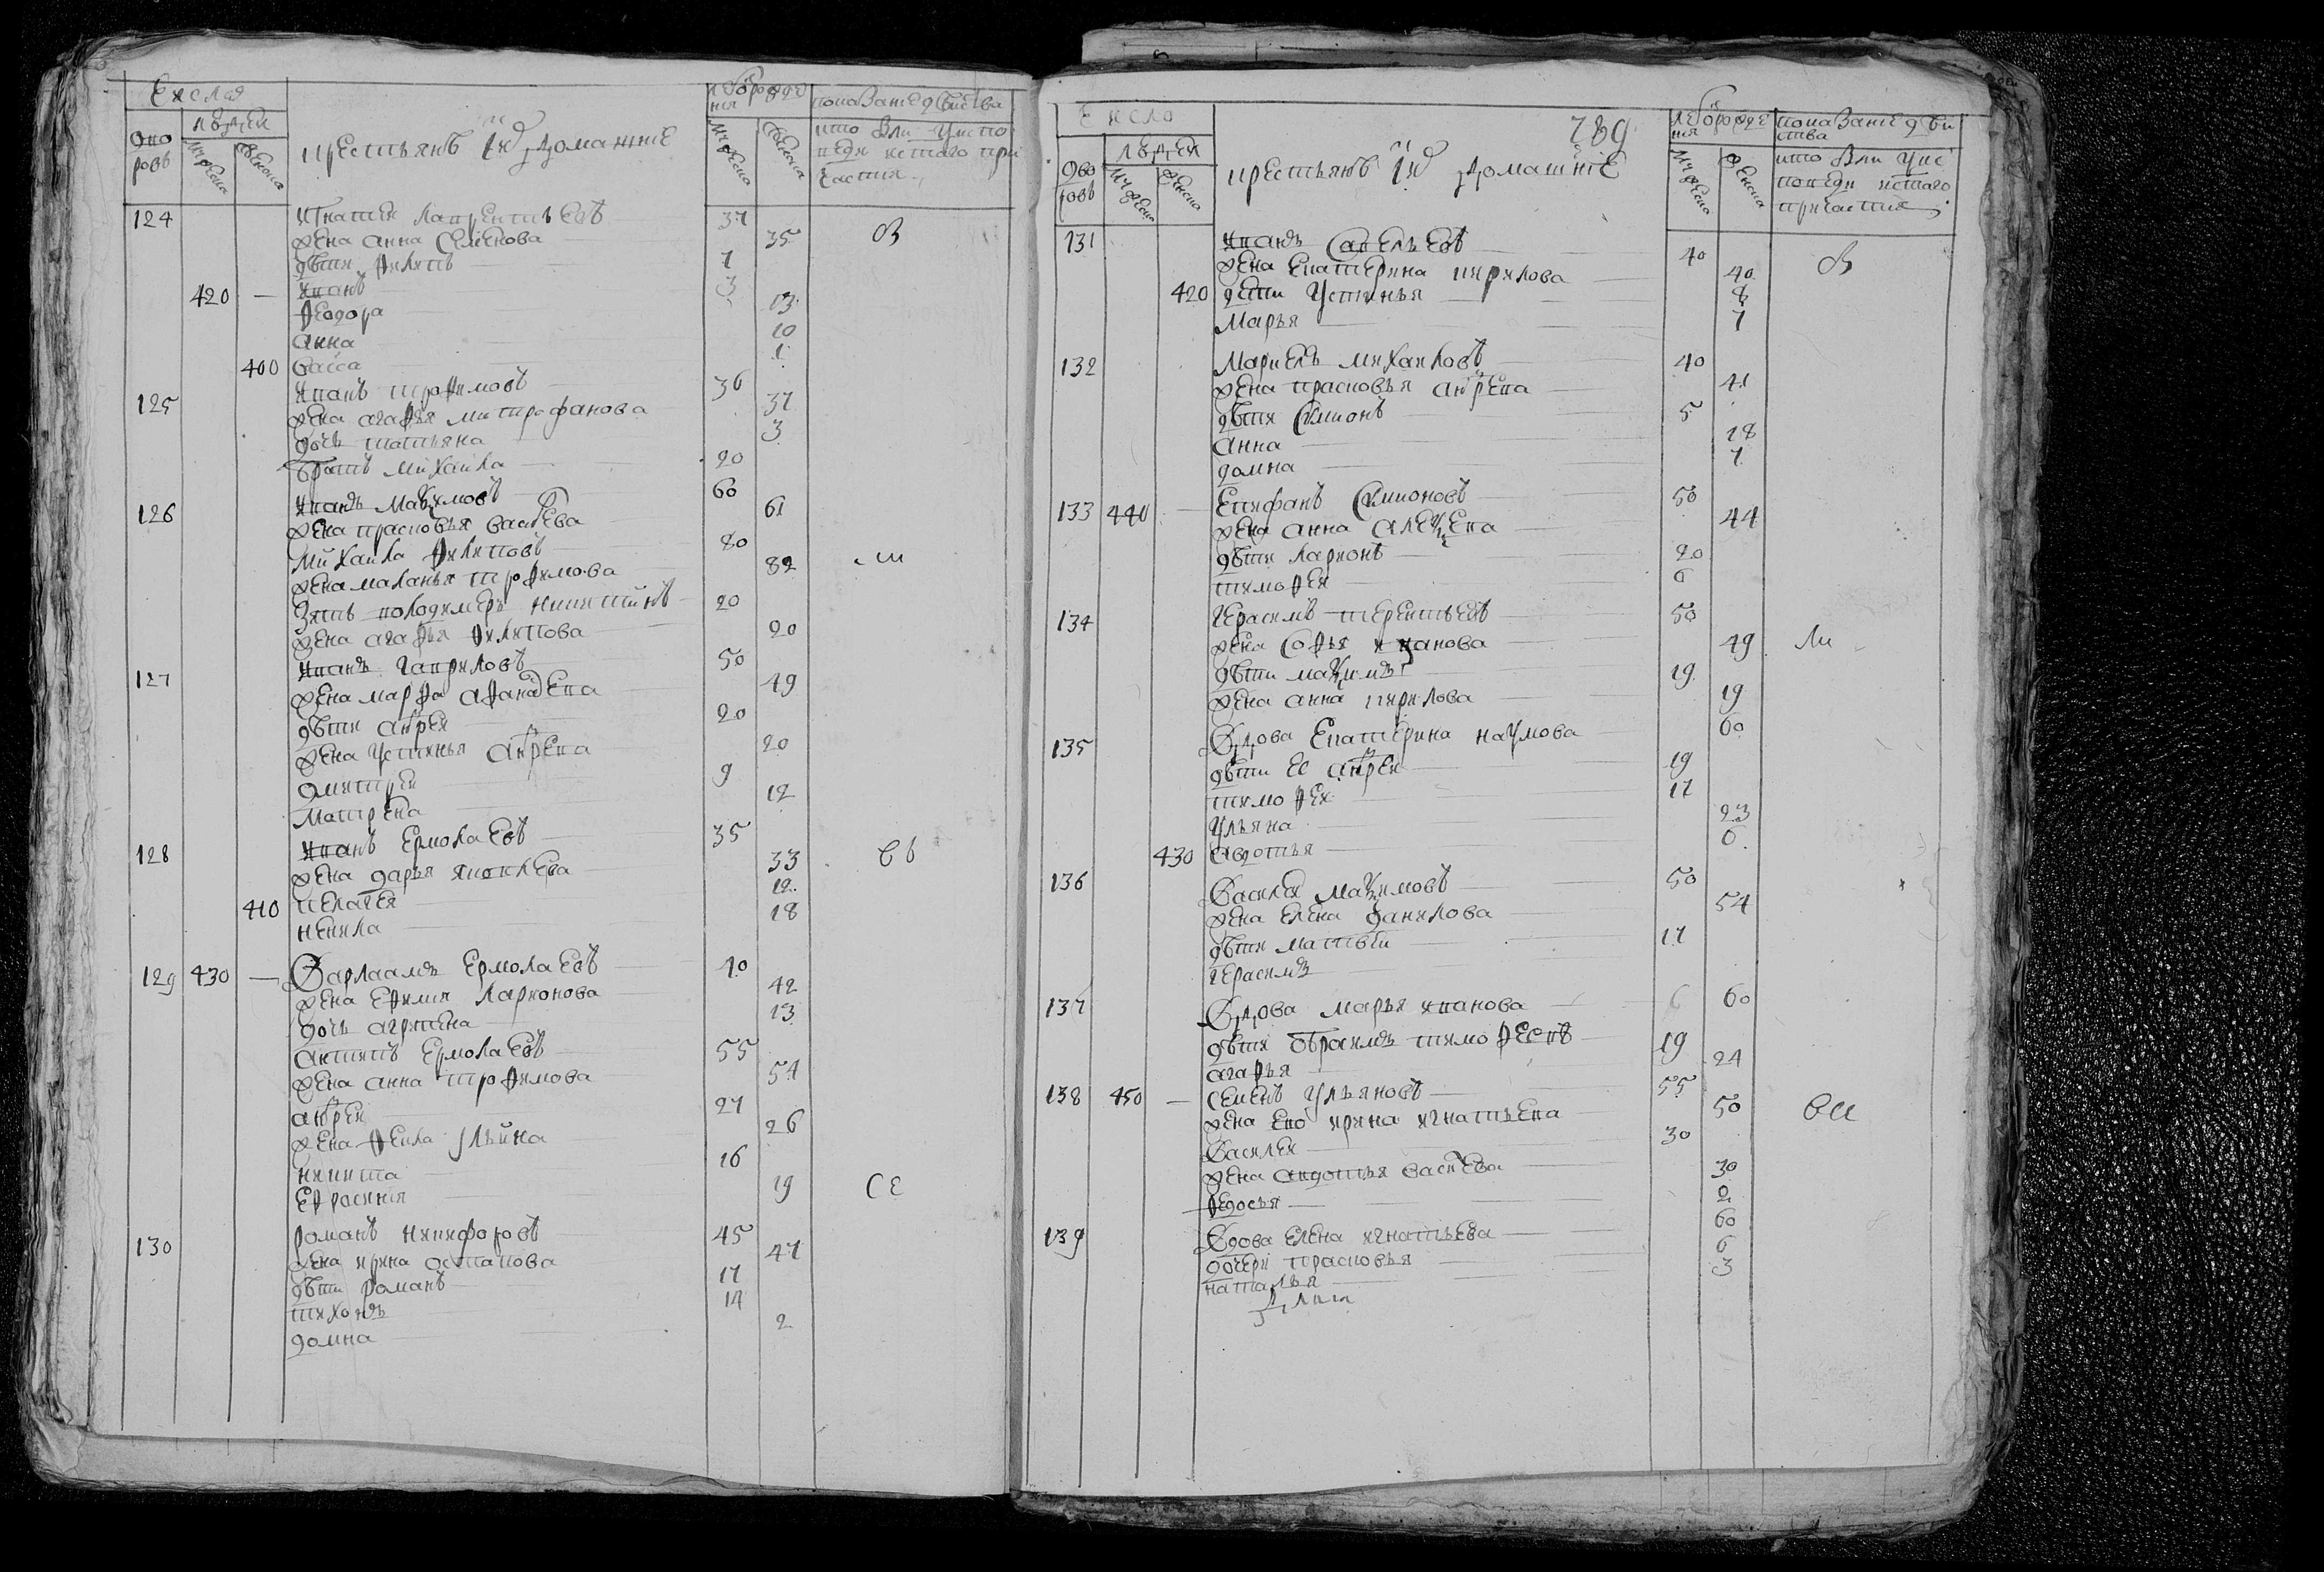 Число
Дво
ровъ
людей
мужеска
женска
крестьянъ и их домашние
Лѣта от рожде
ния
мужеска
женска
показание действа
кто был у испо
веди и святаго при
частия
124 Игнатей Лаврентьевъ 37
жена анна Семенова 35 В
дѣти Филипъ 7
420 — Иванъ 3
Феодора 13
анна 10
400 васса 1
125 Иванъ трофимовъ 36
жена агафья митрофанова 37
дочь татьяна 3
братъ михаила 20
126 Иванъ Маѯимовъ 60
жена прасковья васiлева 61
Михаила Филиповъ 80
жена маланья трофимова 82
зять володимеръ никитинъ 20
жена агафья филипова 20
127 Иванъ гавриловъ 50
жена марфа афанасева 49
дѣти андрей 20
жена Устинья андрева 20
дмитрей 9
матрена 12
128 Иванъ Ермолаевъ 35
жена дарья яковлева 33
12
410 пелагея
ненила 18
129 430 — Варлаамъ Ермолаевъ 40
жена ефимия ларионова 42
дочь агрипена 13
антипъ Ермолаевъ 55
жена анна трофимова 54
андрей 27
жена фекла 26
никита 16
Ефросиния 19 СЕ
130 романъ никифоровъ 45
жена ирина остапова 47
дѣти романъ 17
тихонъ 14
домна 2
789
Число
Дво
ровъ
людей
мужеска
женска
крестьянъ и их домашние
Лѣта от рожде
ния
мужеска
женска
показание дѣи
ства
кто был у ис
поведи и святаго
причастия
131 Иванъ Савельевъ 40
жена Екатерина кирилова 40 В
420 дети Устинья 8
Марья 7
132 Маркелъ михаиловъ 40
жена прасковья андрева 41
дѣти Симионъ 5
анна 18
домна 7
133 440 — Епифанъ Симионовъ 50
жена анна алеѯева 44
дѣти ларионъ 20
тимофей 6
134 герасимъ терентьевъ 50
жена Софья иванова 49
дѣти маѯимъ 19
жена анна кирилова 19
135 Вдова Екатерина наумова 60
дѣти ее андрей 19
тимофей 17
ульяна 23
430 авдотья 6
136 Василей маѯимовъ 50
жена елена данилова 54
дѣти матвѣй 17
герасимъ
137 Вдова марья иванова 60
дѣти абрамъ тимофеевъ 19
агафья 24
138 450 — Семенъ Ульяновъ 55
жена ево ирина игнатьева 50
Василей 30
жена авдотья васiлева 30
федосья 2
139 Вдова елена игнатьева 60
дочери прасковья 6
наталья 3